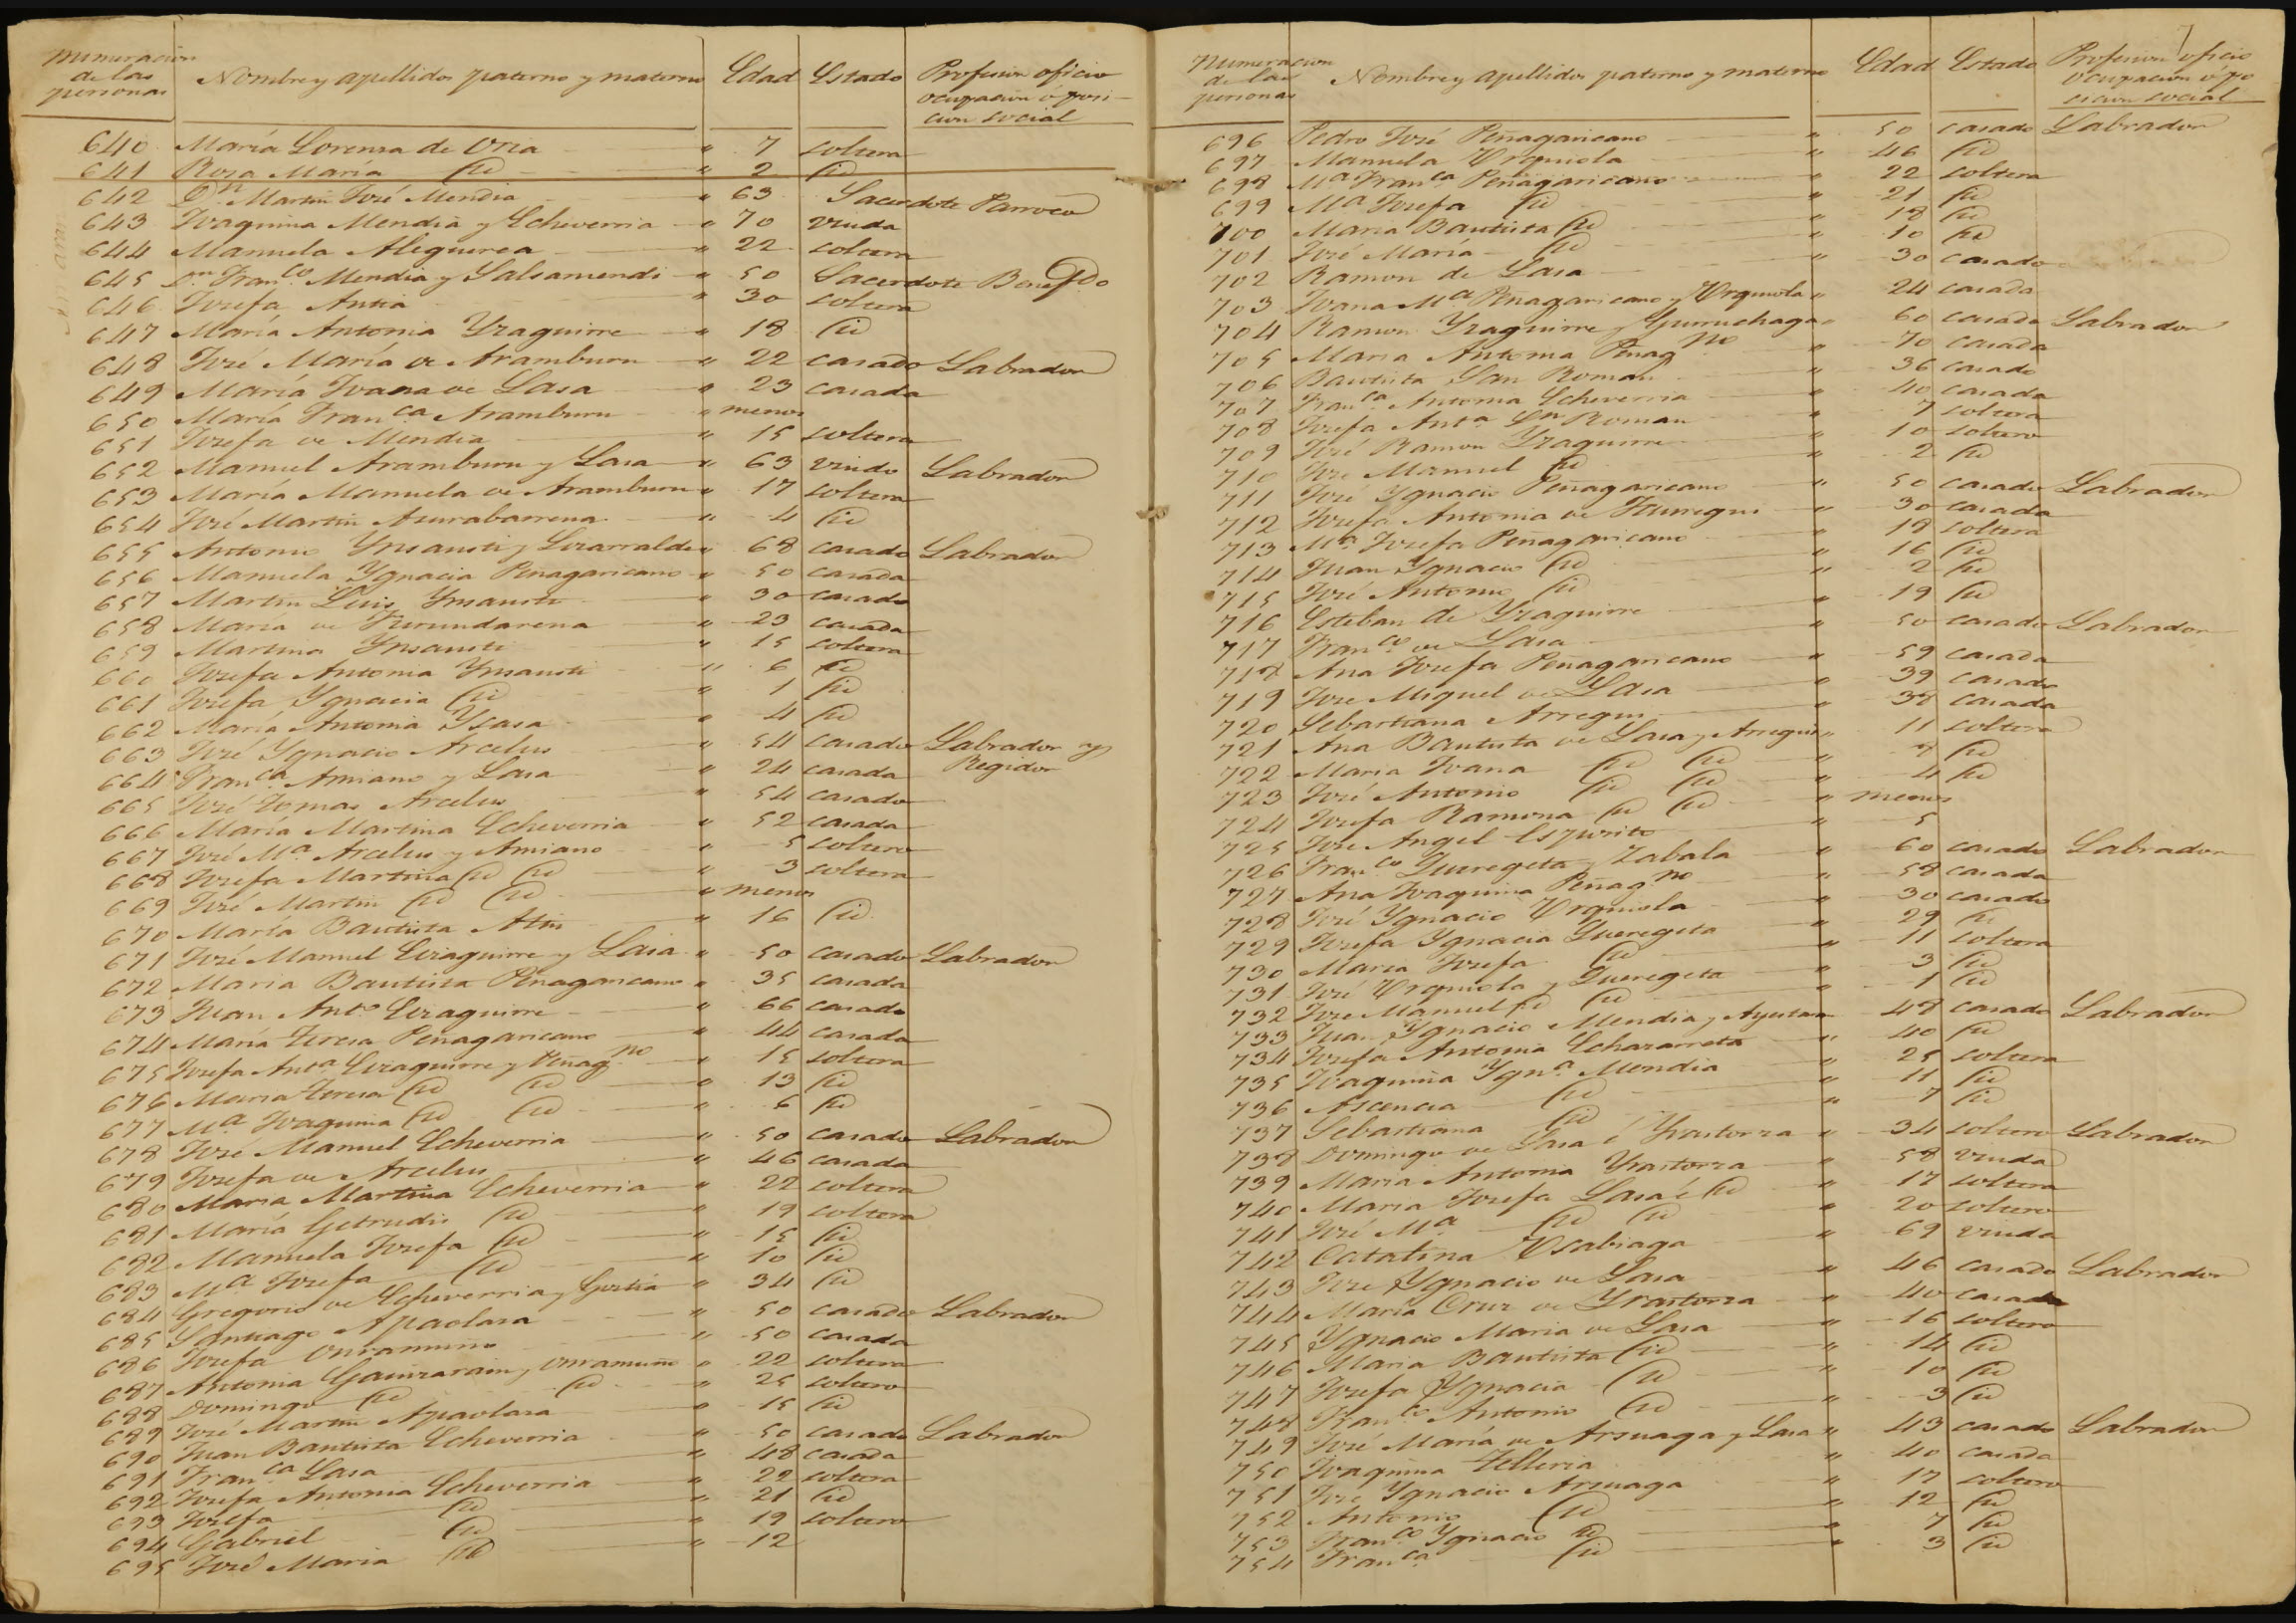 Numeracion de las personas | Nombre y apellidos paterno y materno | Edad | Estado | Profesion oficio ocupacion ó posicion social
640 María Lorensa de Oria " 7 soltera
641 Rosa María (id) " 2 (id)
642 Dn. Martin José Mendia " 63 Sacerdote Parroco
643 Joaquina Mendia y Echeverria " 70 viuda
644 Manuela Aleguerea " 22 soltera
645 Dn. Franco. Mendia y Salsamendi " 50 Sacerdote Benefdo
646 Josefa Antia " 30 soltera
647 María Antonia Yzaguirre " 18 (id)
648 José María de Aramburu " 22 casado Labrador
649 María Juana de Lasa " 23 casada
650 María Franca Aramburu " menos
651 Josefa de Mendia " 15 soltera
652 Manuel Aramburu y Lasa " 63 viudo Labrador
653 María Manuela de Aramburu " 17 soltera
654 José Martin Asurabarrena " 4 (id)
655 Antonio Ynsausti y Lizarralde " 68 casado Labrador
656 Manuela Ygnacia Peñagaricano " 50 casada
657 Martin Luis Ynsausti " 30 casado
658 María de Yurundarena " 23 casada
659 Martina Ynsausti " 15 soltera
660 Josefa Antonia Ynsausti " 6 (id)
661 Josefa Ygnacia (id) " 1 (id)
662 María Antonia Ysasa " 4 (id)
663 José Ygnacio Arcelus " 54 casado Labrador y Regidor
664 Franca. Amiano y Lasa " 24 casada
665 José Tomas Arcelus " 54 casado
666 María Martina Echeverria " 52 casada
667 José Ma. Arcelus y Amiano " 5 soltero
668 Josefa Martina (id) (id) " 3 soltera
669 José Martin (id) (id) " menos
670 María Bautista Atin " 16 (id)
671 José Manuel Eizaguirre y Lasa " 50 casado Labrador
672 Maria Bautista Peñagaricano " 35 casada
673 Juan Anto Eizaguirre " 66 casado
674 María Teresa Peñagaricano " 44 casada
675 Josefa Anta Eizaguirre y Peñagno " 15 soltera
676 Maria Teresa (id) (id) " 13 (id)
677 Ma Joaquina (id) (id) " 6 (id)
678 José Manuel Echeverria " 50 casado Labrador
679 Josefa de Arcelus " 46 casada
680 Maria Martina Echeverria " 22 soltera
681 María Getrudis (id) " 19 soltera
682 Manuela Josefa (id) " 15 (id)
683 Ma Josefa (id) " 10 (id)
684 Gregorio de Echeverria y Gostia " 34 (id)
685 Santiago Apaolasa " 50 casado Labrador
686 Josefa Unramuño " 50 casada
687 Antonia Gainzarain y Unramuño " 22 soltera
688 Domingo (id) (id) " 25 soltero
689 José Martin Apaolasa " 15 (id)
690 Juan Bautista Echeverria " 50 casado Labrador
691 Franca Lasa " 48 casada
692 Josefa Antonia Echeverria " 22 soltera
693 Josefa (id) " 21 (id)
694 Gabriel (id) " 19 soltero
695 José Maria (id) " 12
7
Numeracion de las personas | Nombre y apellidos paterno y materno | Edad | Estado | Profesion oficio ocupacion ó posicion social
696 Pedro José Peñagaricano " 50 casado Labrador
697 Manuela Urquiola " 46 (id)
698 Ma Franca Peñagaricano " 22 soltera
699 Ma Josefa (id) " 21 (id)
700 Maria Bautista (id) " 18 (id)
701 José María (id) " 10 (id)
702 Ramon de Lasa " 30 casado
703 Juana Ma Peñagaricano y Urquiola " 24 casada
704 Ramon Yzaguirre y Gurruchaga " 60 casado Labrador
705 Maria Antonia Peñagno " 70 casada
706 Bautista San Roman " 36 casado
707 Franca Antonia Echeverria " 40 casada
708 Josefa Anta Sn Roman " 7 soltera
709 José Ramon Yzaguirre " 10 soltero
710 José Manuel (id) " 2 (id)
711 José Ygnacio Peñagaricano " 50 casado Labrador
712 Josefa Antonia de Jauregui " 30 casada
713 Ma. Josefa Peñagaricano " 19 soltera
714 Juan Ygnacio (id) " 16 (id)
715 José Antonio (id) " 2 (id)
716 Esteban de Yzaguirre " 19 (id)
717 Franco de Lasa " 50 casado Labrador
718 Ana Josefa Peñagaricano " 59 casada
719 José Miguel de Lasa " 39 casado
720 Sebastiana Arregui " 38 casada
721 Ana Bautista de Lasa y Arregui " 11 soltera
722 Maria Juana (id) (id) " 7 (id)
723 José Antonio (id) (id) " 4 (id)
724 Josefa Ramona (id) (id) " menos
725 José Angel Esposito " 5
726 Franco. Queregeta y Zabala " 60 casado Labrador
727 Ana Joaquina Peñagno " 58 casada
728 José Ygnacio Urquiola " 30 casado
729 Josefa Ygnacia Queregeta " 29 (id)
730 Maria Josefa (id) " 11 soltera
731 José Urquiola y Queregeta " 3 (id)
732 José Manuel (id) (id) " 1 (id)
733 Juan Ygnacio Mendia y 48 casado Labrador
734 Josefa Antonia Echazarreta " 40 (id)
735 Joaquina Ygna Mendia " 25 soltera
736 Ascencia (id) " 11 (id)
737 Sebastiana (id) " 7 (id)
738 Domingo de Lasa é Yrastorza " 34 soltero Labrador
739 Maria Antonia Yrastorza " 58 viuda
740 Maria Josefa Lasa é (id) " 17 soltera
741 José Ma (id) (id) " 20 soltero
742 Catalina Usabiaga " 69 viuda
743 José Ygnacio de Lasa " 46 casado Labrador
744 María Cruz de Yrastorza " 40 casada
745 Ygnacio Maria de Lasa " 16 soltero
746 Maria Bautista (id) " 14 (id)
747 Josefa Ygnacia (id) " 10 (id)
748 Franco Antonio (id) " 3 (id)
749 José María de Arsuaga y Lasa " 43 casado Labrador
750 Joaquina Telleria " 40 casada
751 José Ygnacio Arsuaga " 17 soltero
752 Antonio (id) " 12 (id)
753 Franco Ygnacio (id) " 7 (id)
754 Franca (id) " 3 (id)